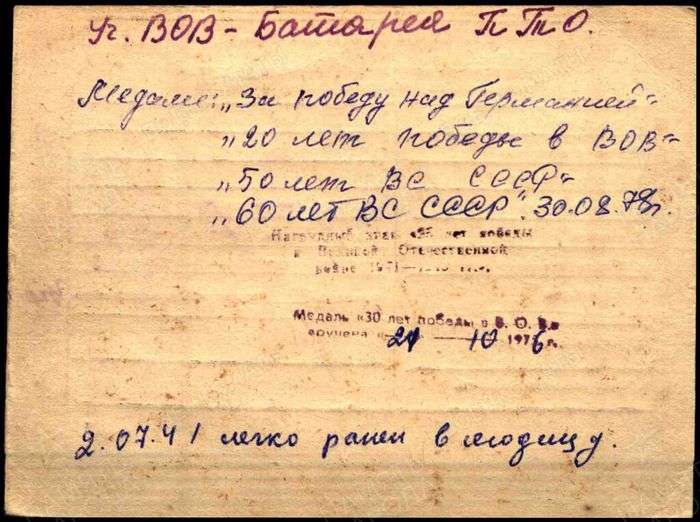 Уч. ВОВ - Батарея ПТО.
Медали: „За победу над Германией“
„20 лет победы в ВОВ“
„50 лет ВС СССР“
„60 лет ВС СССР“. 30.08.78г.
Нагрудный знак «25 лет победы
в Великой Отечественной
войне 1941—1945 гг».
Медаль «30 лет победы в В. О. В.»
вручена « 21 10 1976 г.
2.07.41 легко ранен в ягодицу.